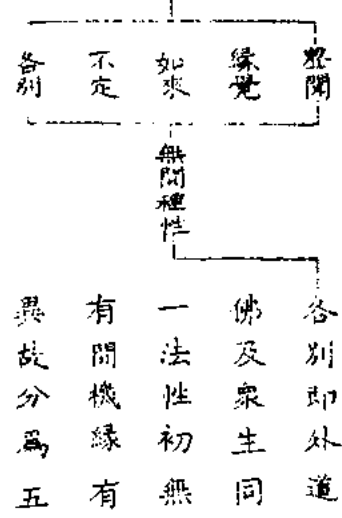 聲聞
緣覺
如來
不定
各別
無間種性
各別即外道
佛及衆生同
一法性初無
有間機緣有
異故分爲五